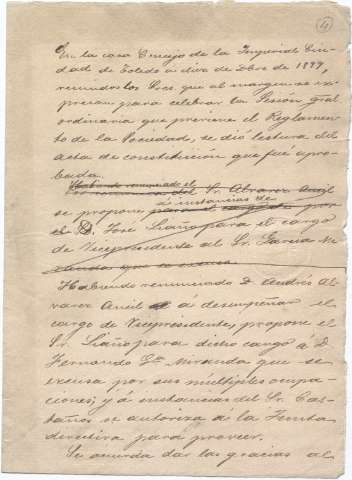 4
En la casa Concejo de la Imperial Ciu-
dad de Toledo a diez de Dbre de 1899,
reunidos los Sres. que al margen se ex-
presan para celebrar la Sesión gral
ordinaria que previene el Reglamen-
to de la Sociedad, se dió lectura del
acta de constitución que fué apro-
bada.
Habiendo renunciado el
Sr. Alvarez Ancil
á instancias de
se propone para el cargo por
el D. José Liaño para el cargo
de Vicepresidente al Sr. García Mi-
randa que se excusa
Habiendo renunciado D. Andrés Al-
varez Ancil á desempeñar el
cargo de Vicepresidente, propone el
Sr. Liaño para dicho cargo á D.
Fernando Gª Miranda que se
excusa por sus múltiples ocupa-
ciones; y á instancias del Sr. Cas-
taños se autoriza á la Junta
directiva para proveer.
Se acuerda dar las gracias al